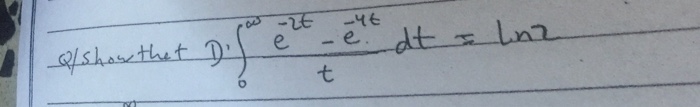 Q/show thet D' ∫₀^∞ (e^{-2t} - e^{-4t})/t dt = ln2